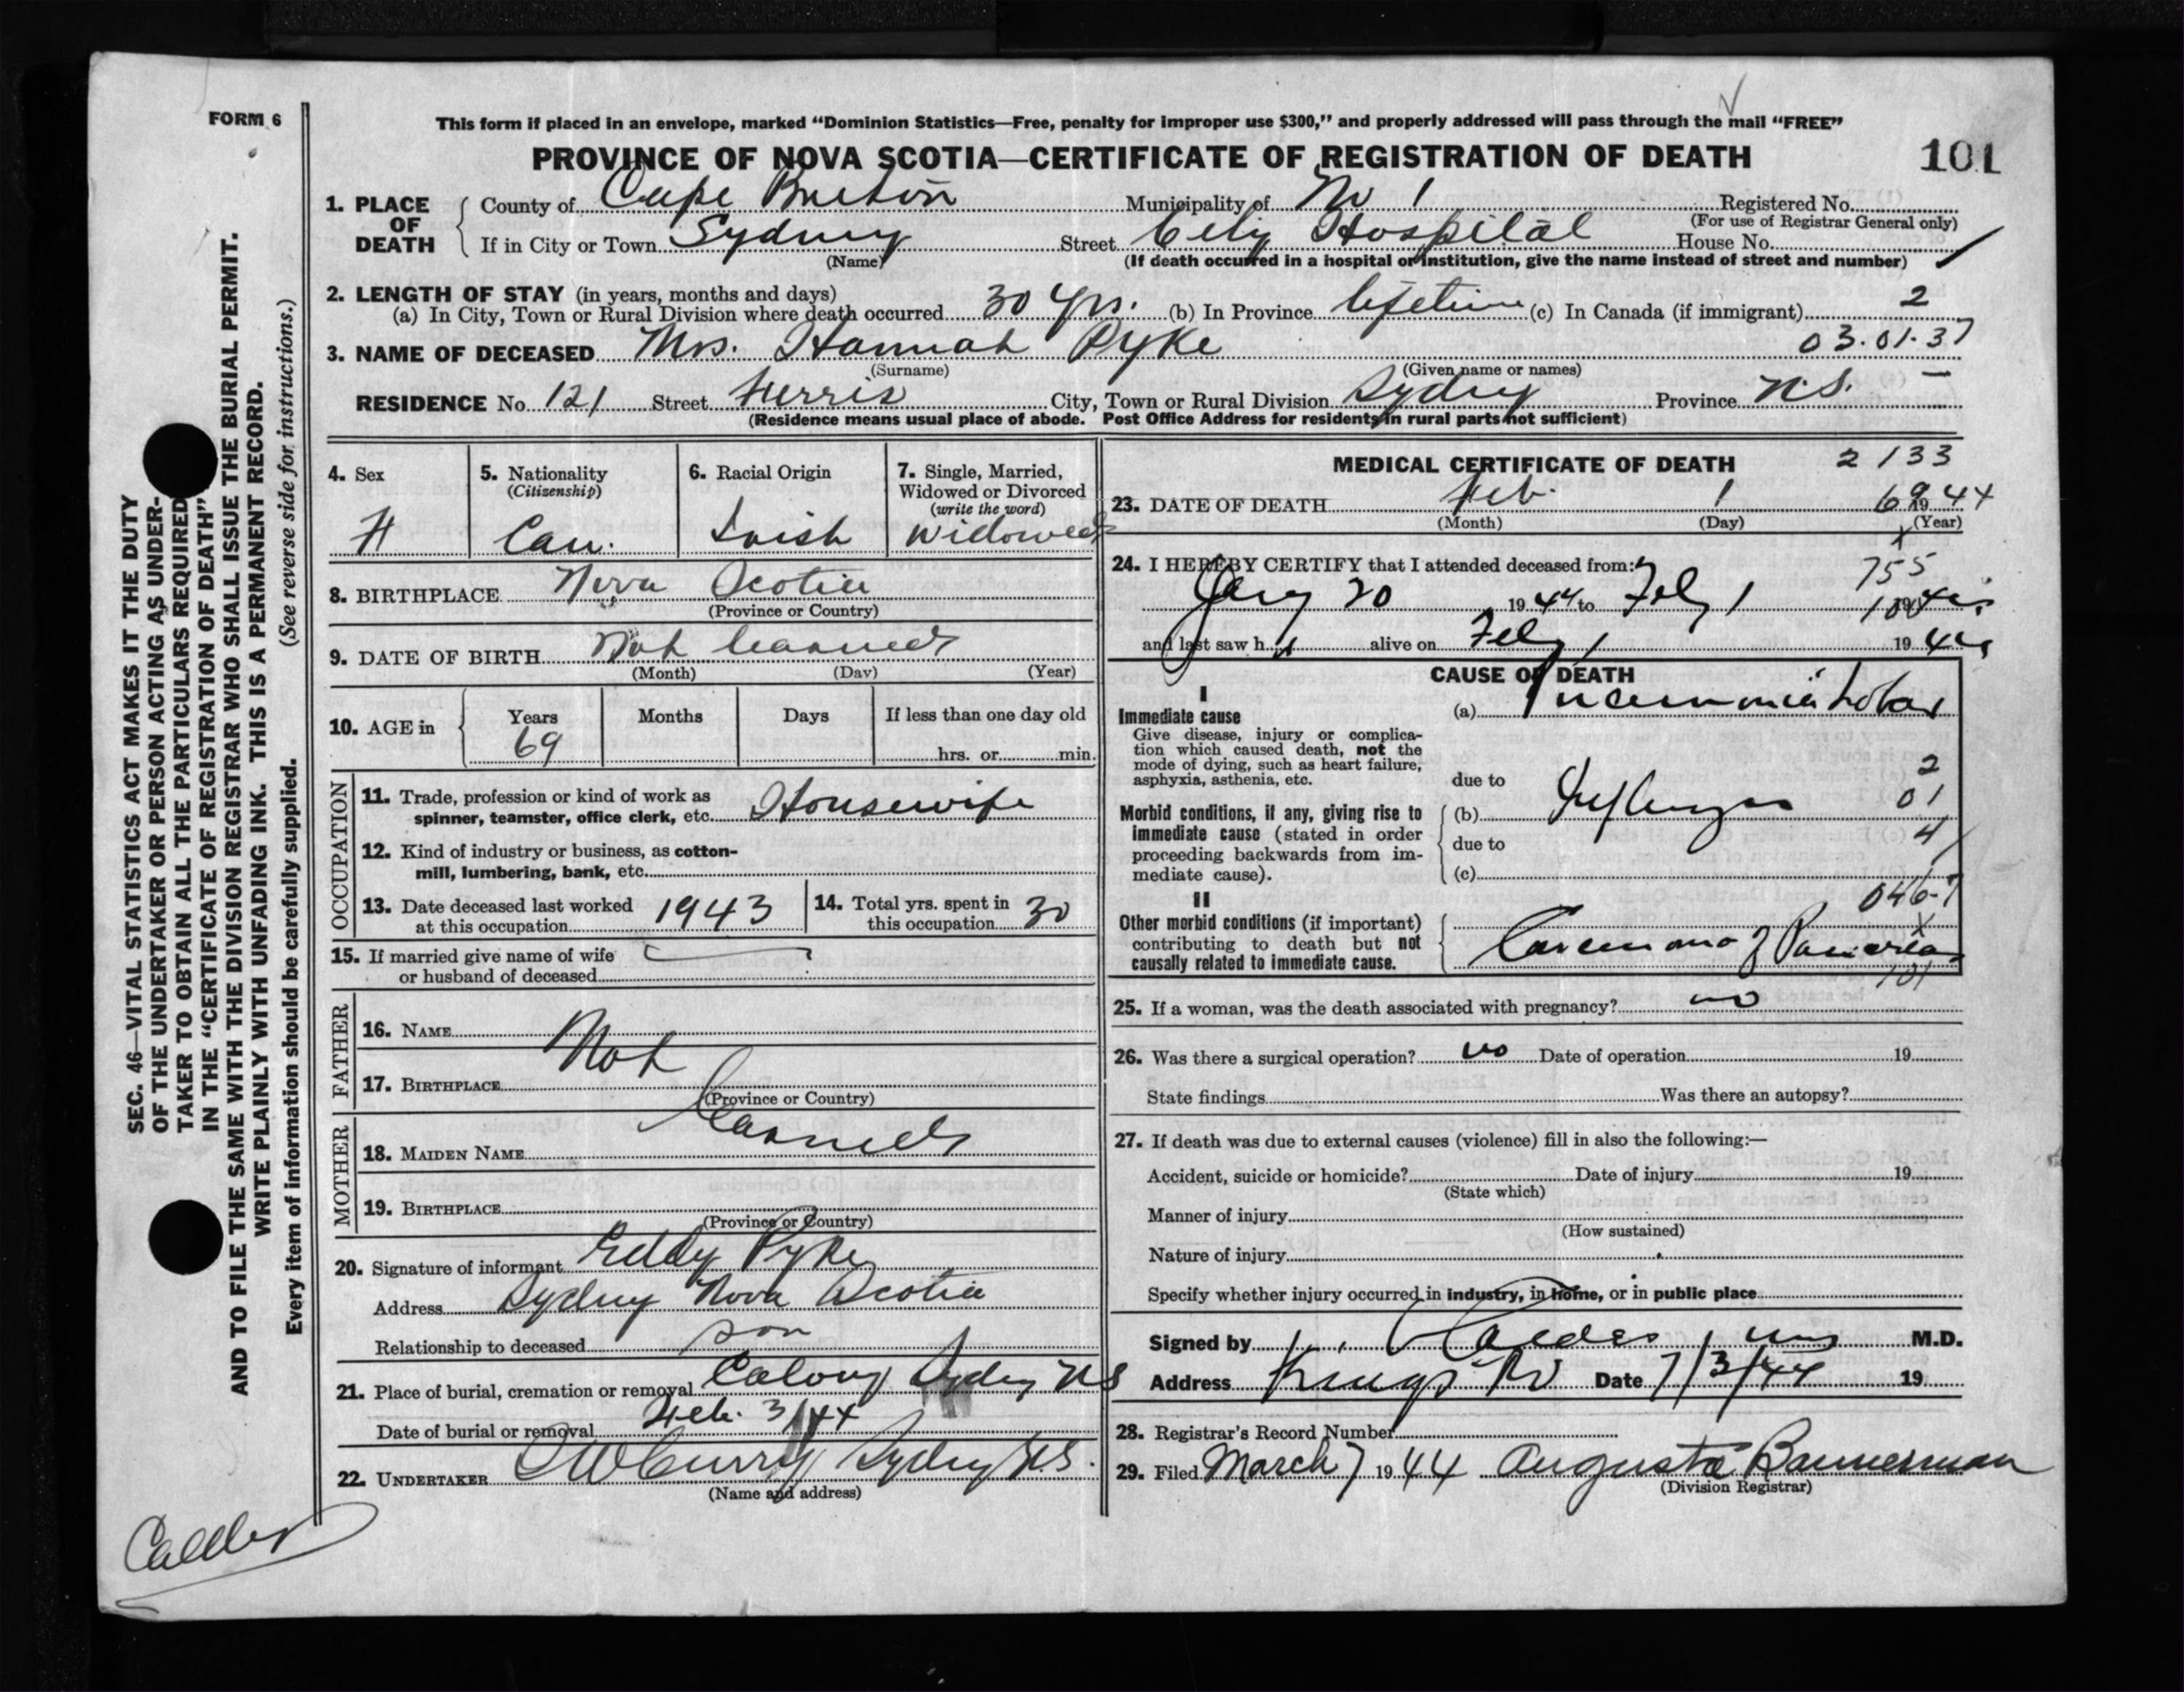 FORM 6
This form if placed in an envelope, marked “Dominion Statistics—Free, penalty for improper use $300,” and properly addressed will pass through the mail “FREE”
PROVINCE OF NOVA SCOTIA—CERTIFICATE OF REGISTRATION OF DEATH
101
1. PLACE OF DEATH
County of Cape Breton Municipality of No 1 Registered No.
(For use of Registrar General only)
If in City or Town Sydney Street City Hospital House No.
(Name) (If death occurred in a hospital or institution, give the name instead of street and number)
2. LENGTH OF STAY (in years, months and days)
(a) In City, Town or Rural Division where death occurred 30 yrs. (b) In Province lifetime (c) In Canada (if immigrant) 2
3. NAME OF DECEASED Mrs. Hannah Pyke 03.01.37
(Surname) (Given name or names)
RESIDENCE No. 121 Street Ferris City, Town or Rural Division Sydney Province N.S. —
(Residence means usual place of abode. Post Office Address for residents in rural parts not sufficient)
4. Sex
F
5. Nationality
(Citizenship)
Can.
6. Racial Origin
Irish
7. Single, Married,
Widowed or Divorced
(write the word)
Widowed
8. BIRTHPLACE Nova Scotia
(Province or Country)
9. DATE OF BIRTH Not learned
(Month) (Day) (Year)
10. AGE in Years Months Days If less than one day old
69 hrs. or min.
OCCUPATION
11. Trade, profession or kind of work as
spinner, teamster, office clerk, etc. Housewife
12. Kind of industry or business, as cotton-
mill, lumbering, bank, etc.
13. Date deceased last worked
at this occupation 1943
14. Total yrs. spent in
this occupation 30
15. If married give name of wife
or husband of deceased
FATHER
16. NAME Not
17. BIRTHPLACE
(Province or Country)
learned
MOTHER
18. MAIDEN NAME
19. BIRTHPLACE
(Province or Country)
20. Signature of informant Eddy Pyke
Address Sydney Nova Scotia
Relationship to deceased son
21. Place of burial, cremation or removal Sydney NS
Date of burial or removal Feb. 3/44
22. UNDERTAKER Curry Sydney N.S.
(Name and address)
MEDICAL CERTIFICATE OF DEATH 2133
23. DATE OF DEATH Feb. 1 1944
69
(Month) (Day) (Year)
x
24. I HEREBY CERTIFY that I attended deceased from: 755
Jany 20 1944 to Feby 1 1944
and last saw h alive on Feby 1 1944
CAUSE OF DEATH
I
Immediate cause
Give disease, injury or complica-
tion which caused death, not the
mode of dying, such as heart failure,
asphyxia, asthenia, etc.
(a) Pneumonia Lobar
due to
2
01
4
Morbid conditions, if any, giving rise to
immediate cause (stated in order
proceeding backwards from im-
mediate cause).
(b) Influenza
due to
(c)
046-7
x
II
Other morbid conditions (if important)
contributing to death but not
causally related to immediate cause.
Carcinoma of Pancreas
101
25. If a woman, was the death associated with pregnancy? no
26. Was there a surgical operation? no Date of operation 19
State findings Was there an autopsy?
27. If death was due to external causes (violence) fill in also the following:—
Accident, suicide or homicide? Date of injury 19
(State which)
Manner of injury
(How sustained)
Nature of injury
Specify whether injury occurred in industry, in home, or in public place
Signed by Calder M.D.
Address Kings Rd Date 7/3/44 19
28. Registrar's Record Number
29. Filed March 7 1944 Augusta Bannerman
(Division Registrar)
SEC. 46—VITAL STATISTICS ACT MAKES IT THE DUTY
OF THE UNDERTAKER OR PERSON ACTING AS UNDER-
TAKER TO OBTAIN ALL THE PARTICULARS REQUIRED
IN THE “CERTIFICATE OF REGISTRATION OF DEATH”
AND TO FILE THE SAME WITH THE DIVISION REGISTRAR WHO SHALL ISSUE THE BURIAL PERMIT.
WRITE PLAINLY WITH UNFADING INK. THIS IS A PERMANENT RECORD.
Every item of information should be carefully supplied. (See reverse side for instructions.)
Calder